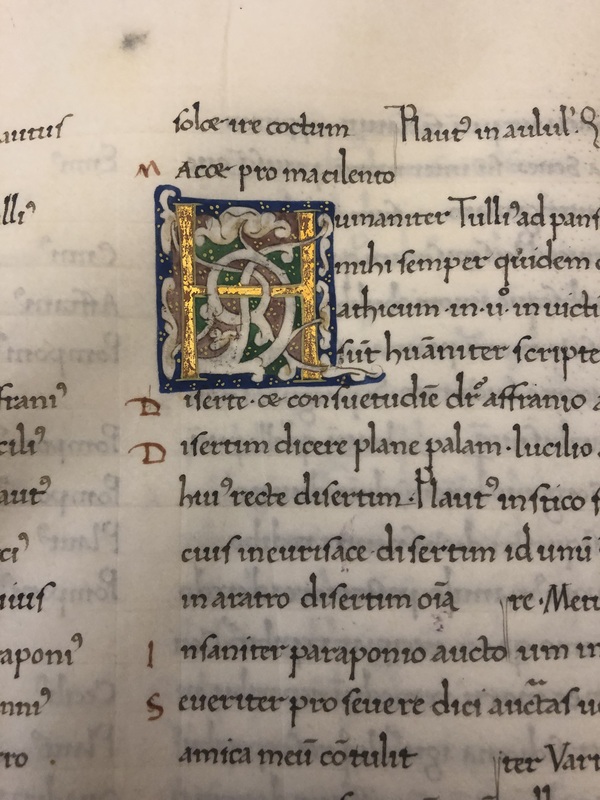 autus
lliꝰ
frani⁹
cili⁹
aut⁹
ci⁹
uius
aponi⁹
nni⁹
rro
solœ ire coctum Plaut⁹ in aulul'.
M Accœ pro macilento
Humaniter Tulli⁹ ad pans
mihi semper quidem
athicum · in · u° · inuicti
sūt huāniter scripte
Diserte · œ consuetudīe dr̄ affranio
Disertim dicere plane palam · lucilio
hui⁹ recte disertim. Plaut⁹ in stico
cuius in eurisace disertim id unū
in aratro disertim oīa re · Met
Insaniter paraponio aucto um in
Seueriter pro seuere dici auctas
amica meū cōtulit ter Varr